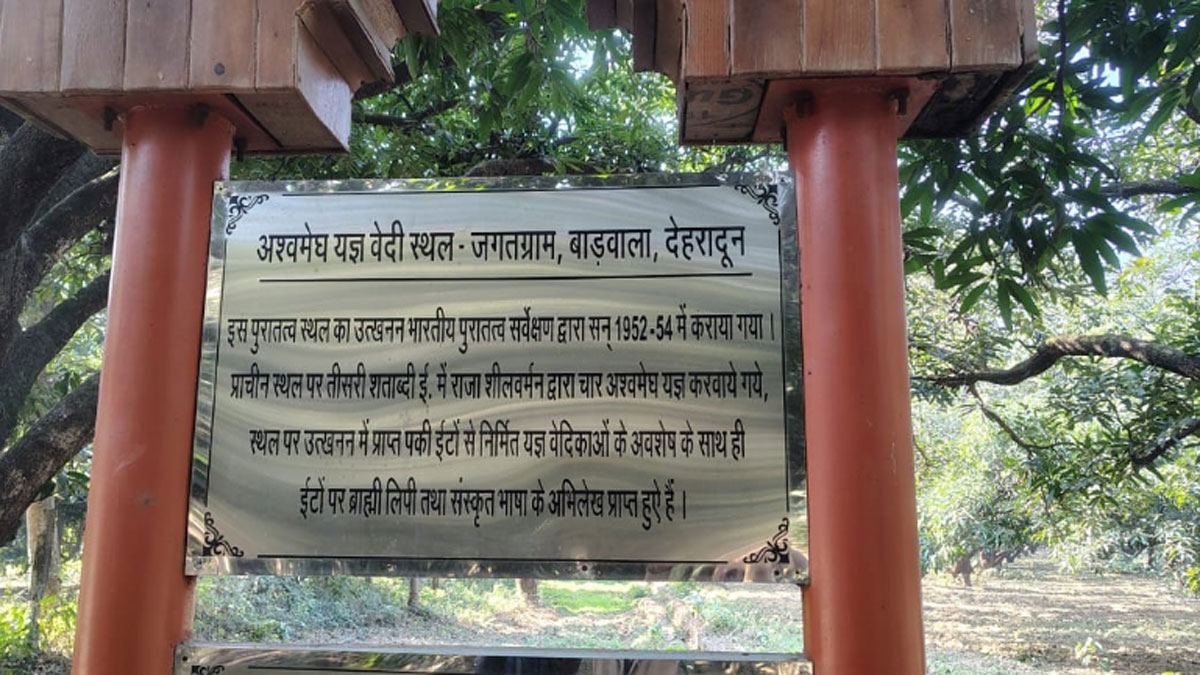 अश्वमेघ यज्ञ वेदी स्थल - जगतग्राम, बाड़वाला, देहरादून
इस पुरातत्व स्थल का उत्खनन भारतीय पुरातत्व सर्वेक्षण द्वारा सन् 1952-54 में कराया गया ।
प्राचीन स्थल पर तीसरी शताब्दी ई. में राजा शीलवर्मन द्वारा चार अश्वमेघ यज्ञ करवाये गये,
स्थल पर उत्खनन में प्राप्त पकी ईटों से निर्मित यज्ञ वेदिकाओं के अवशेष के साथ ही
ईटों पर ब्राह्मी लिपी तथा संस्कृत भाषा के अभिलेख प्राप्त हुऐ हैं ।